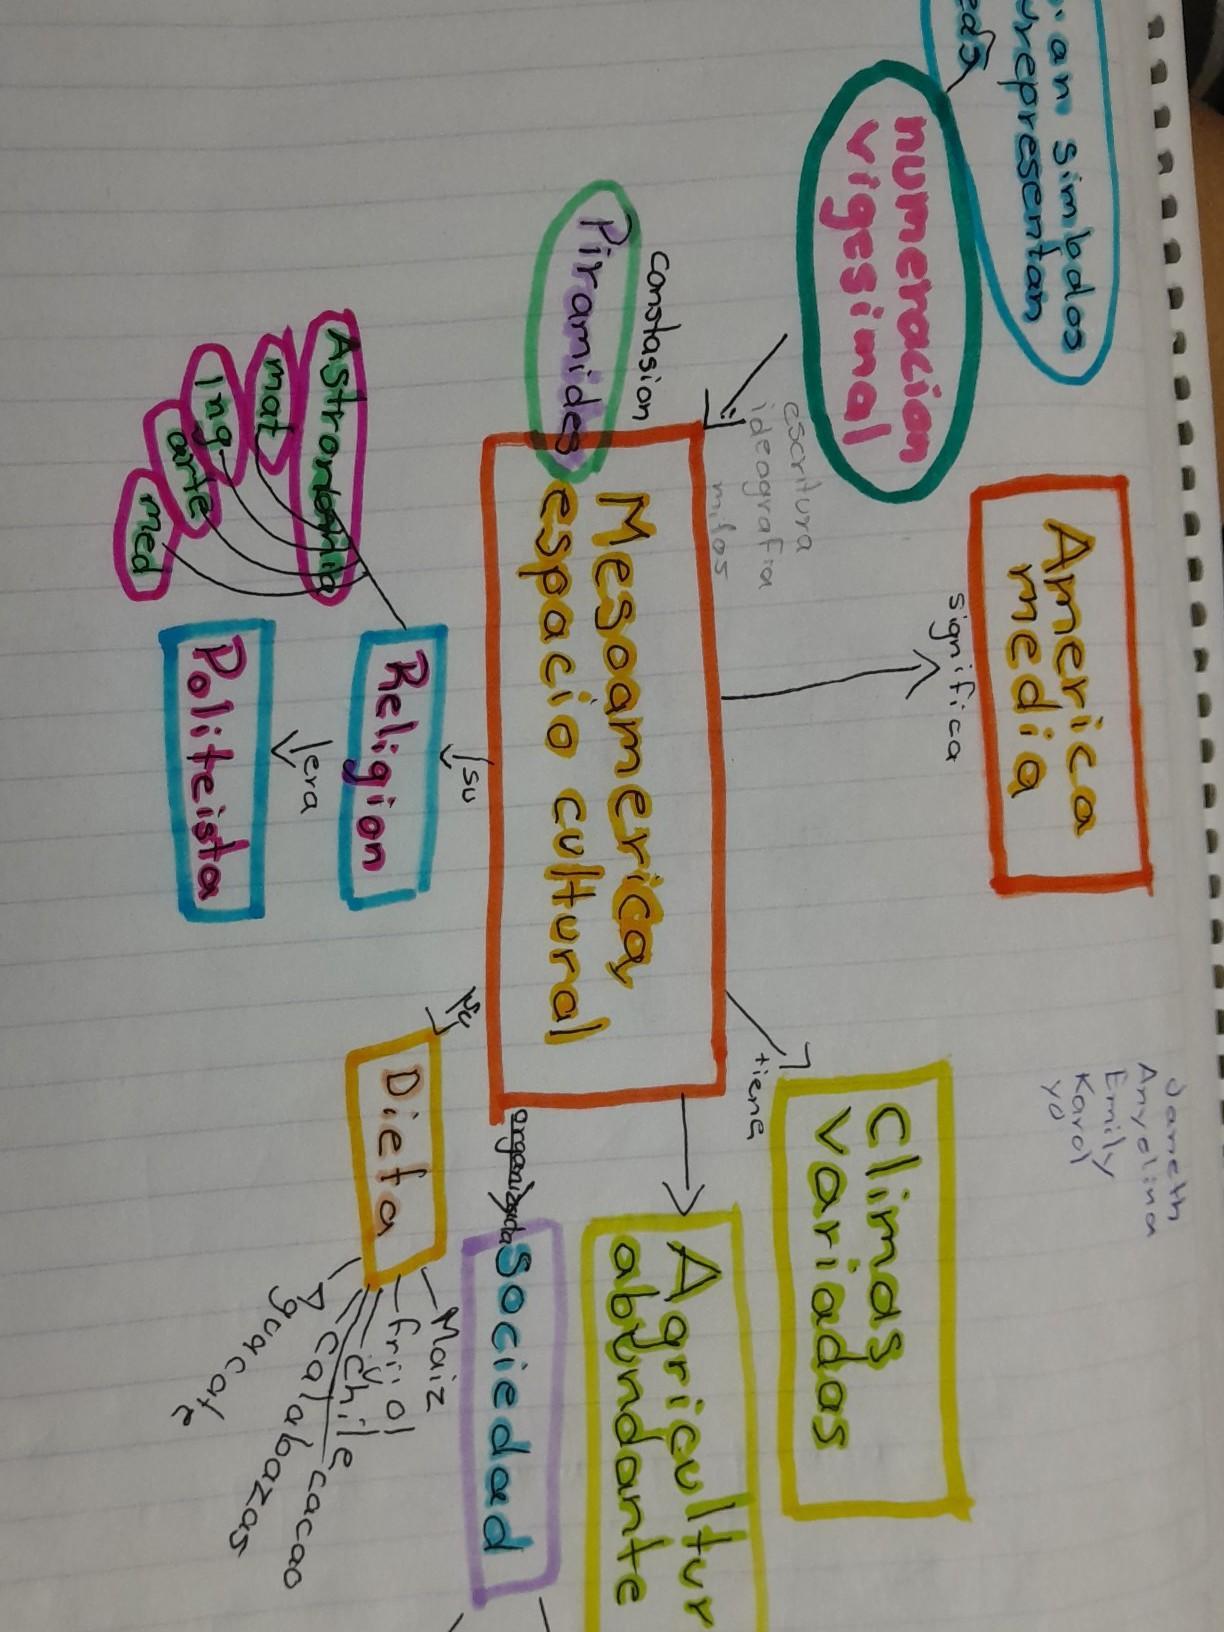 simbolos
representan
numeracion
vigesimal
America
media
significa
Jareth
Anyelina
Emily
Karol
yo
escritura
ideografia
mitos
constasion
Piramides
Mesoamerica,
espacio cultural
tiene
Climas
variados
Agricultur
abundante
organizada
Sociedad
su
Religion
era
Politeista
Astronomia
mat
Ing
arte
med
su
Dieta
Maiz
frijol
chile
cacao
calabazas
Aguacate